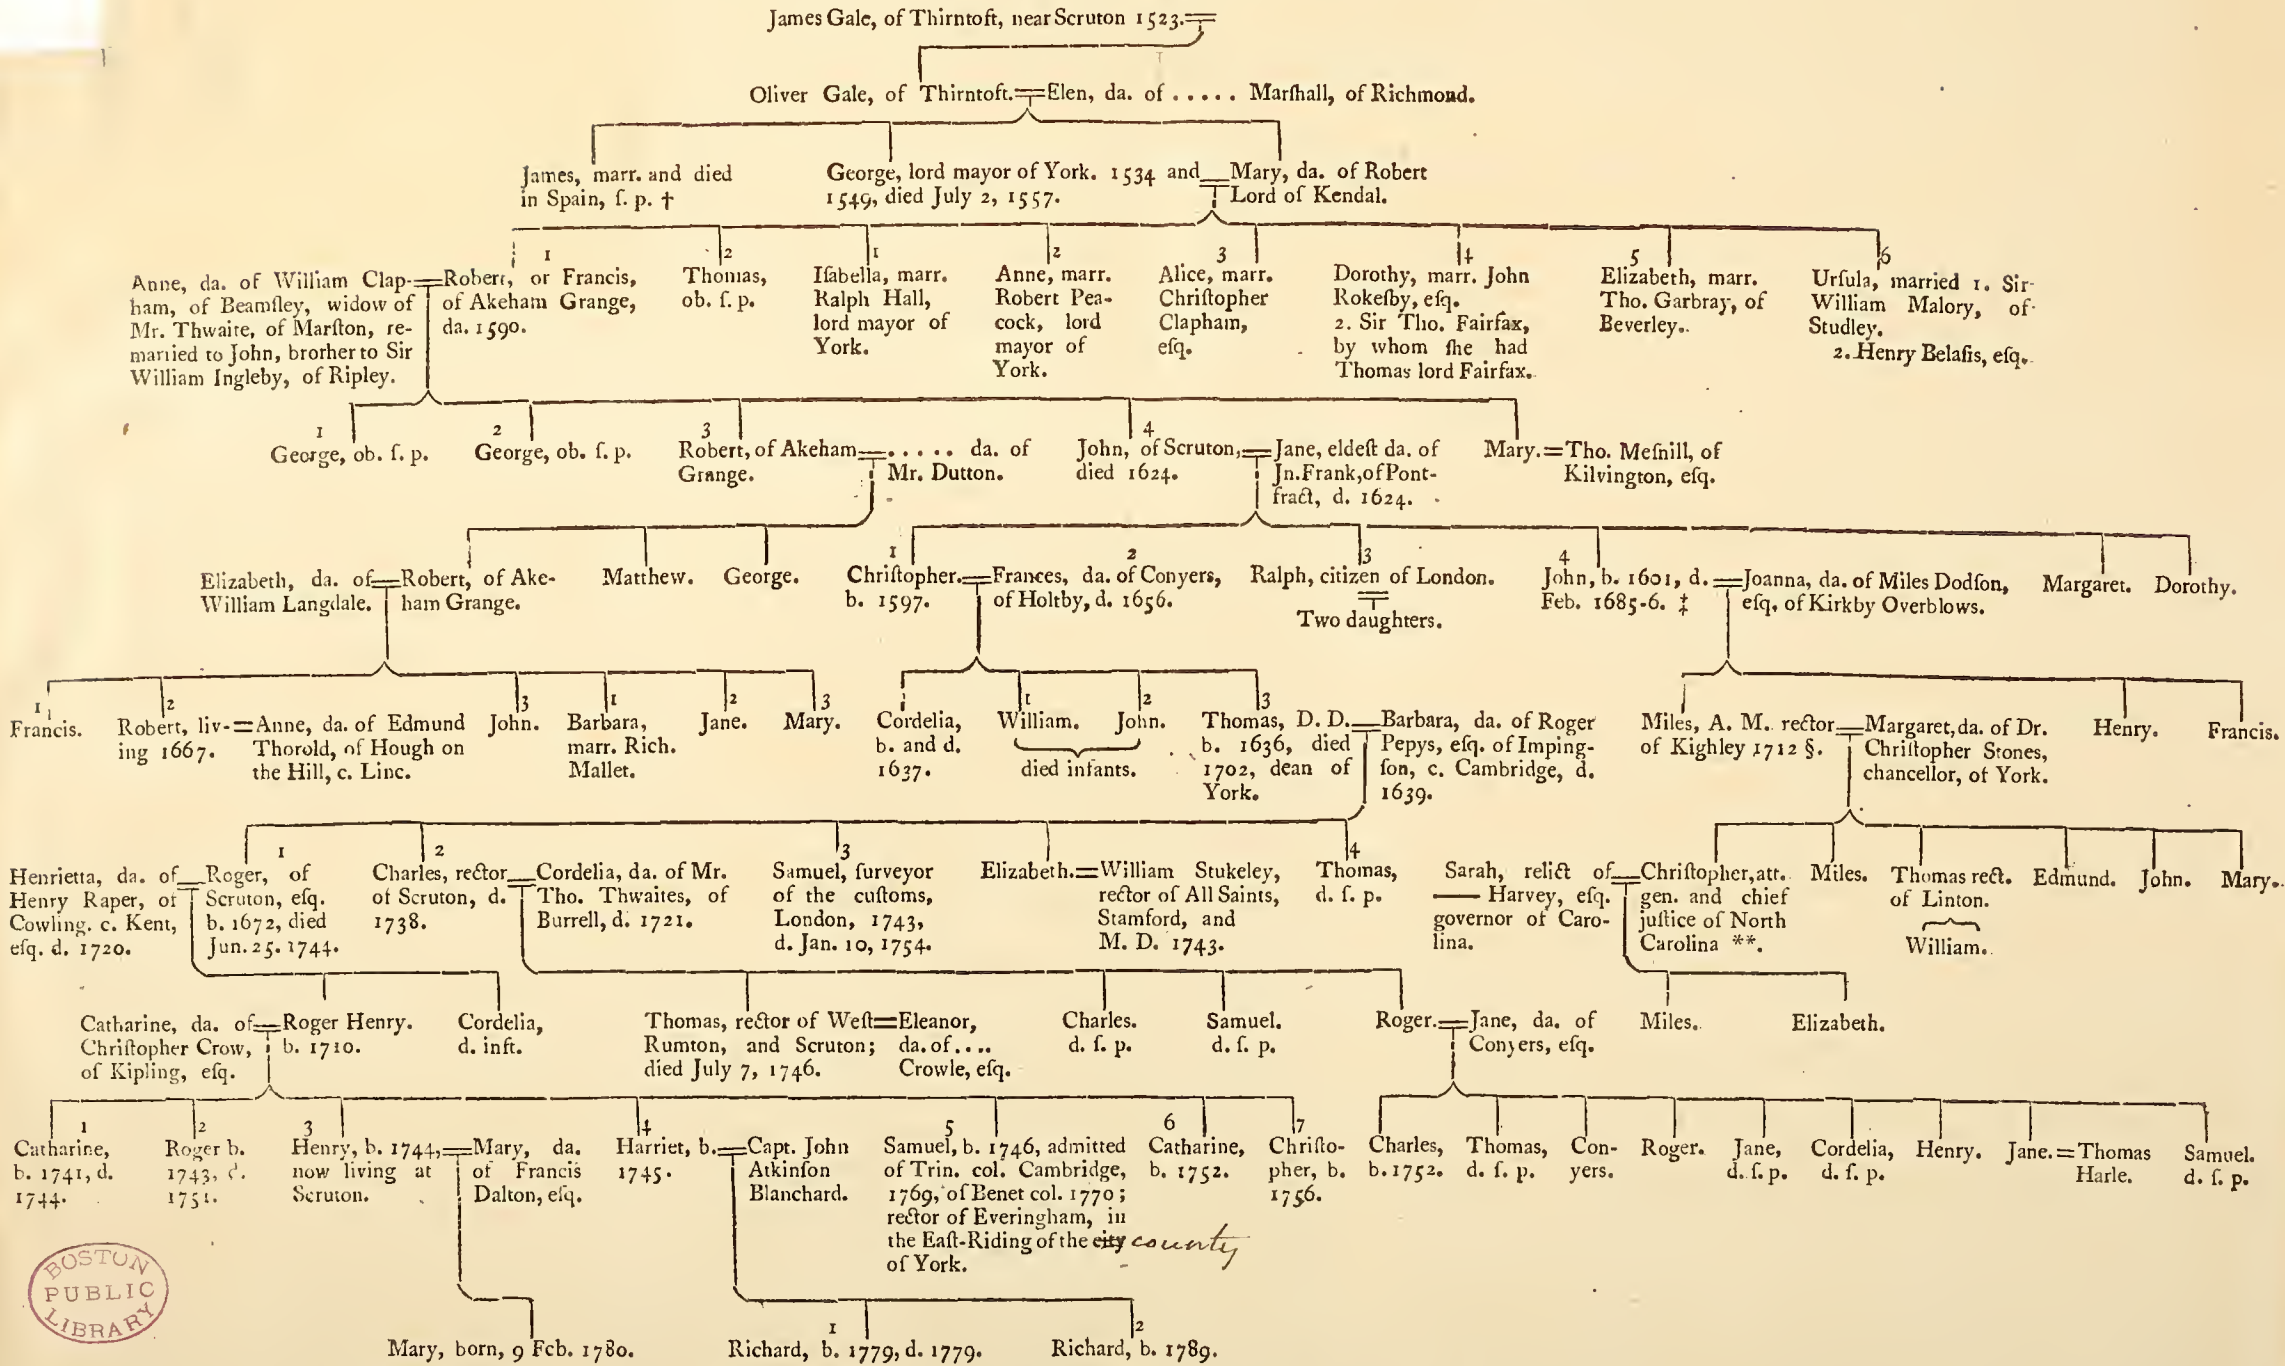 James Gale, of Thirntoft, near Scruton 1523.
Oliver Gale, of Thirntoft.=Elen, da. of ..... Marſhall, of Richmond.
James, marr. and died
in Spain, ſ. p. †
George, lord mayor of York. 1534 and
1549, died July 2, 1557.
Mary, da. of Robert
Lord of Kendal.
Anne, da. of William Clap-
ham, of Beamſley, widow of
Mr. Thwaite, of Marſton, re-
married to John, brorher to Sir
William Ingleby, of Ripley.
1
Robert, or Francis,
of Akeham Grange,
da. 1590.
2
Thomas,
ob. ſ. p.
1
Iſabella, marr.
Ralph Hall,
lord mayor of
York.
2
Anne, marr.
Robert Pea-
cock, lord
mayor of
York.
3
Alice, marr.
Chriſtopher
Clapham,
eſq.
4
Dorothy, marr. John
Rokeſby, eſq.
2. Sir Tho. Fairfax,
by whom ſhe had
Thomas lord Fairfax.
5
Elizabeth, marr.
Tho. Garbray, of
Beverley.
6
Urſula, married 1. Sir
William Malory, of
Studley.
2. Henry Belaſis, eſq.
1
George, ob. ſ. p.
2
George, ob. ſ. p.
3
Robert, of Akeham
Grange.
..... da. of
Mr. Dutton.
4
John, of Scruton,
died 1624.
Jane, eldeſt da. of
Jn. Frank, of Pont-
fract, d. 1624.
Mary.=Tho. Meſnill, of
Kilvington, eſq.
Elizabeth, da. of
William Langdale.
Robert, of Ake-
ham Grange.
Matthew.
George.
1
Chriſtopher.
b. 1597.
2
Frances, da. of Conyers,
of Holtby, d. 1656.
3
Ralph, citizen of London.
Two daughters.
4
John, b. 1601, d.
Feb. 1685-6. ‡
Joanna, da. of Miles Dodſon,
eſq. of Kirkby Overblows.
Margaret.
Dorothy.
1
Francis.
2
Robert, liv-
ing 1667.
Anne, da. of Edmund
Thorold, of Hough on
the Hill, c. Linc.
3
John.
1
Barbara,
marr. Rich.
Mallet.
2
Jane.
3
Mary.
Cordelia,
b. and d.
1637.
1
William.
2
John.
died infants.
3
Thomas, D. D.
b. 1636, died
1702, dean of
York.
Barbara, da. of Roger
Pepys, eſq. of Imping-
ſon, c. Cambridge, d.
1639.
Miles, A. M. rector
of Kighley 1712 §.
Margaret, da. of Dr.
Chriſtopher Stones,
chancellor, of York.
Henry.
Francis.
Henrietta, da. of
Henry Raper, of
Cowling. c. Kent,
eſq. d. 1720.
1
Roger, of
Scruton, eſq.
b. 1672, died
Jun. 25. 1744.
2
Charles, rector
of Scruton, d.
1738.
Cordelia, da. of Mr.
Tho. Thwaites, of
Burrell, d. 1721.
3
Samuel, ſurveyor
of the cuſtoms,
London, 1743,
d. Jan. 10, 1754.
Elizabeth.=William Stukeley,
rector of All Saints,
Stamford, and
M. D. 1743.
4
Thomas,
d. ſ. p.
Sarah, relict of
—— Harvey, eſq.
governor of Caro-
lina.
Chriſtopher, att.
gen. and chief
juſtice of North
Carolina **.
Miles.
Thomas rect.
of Linton.
William.
Edmund.
John.
Mary.
Catharine, da. of
Chriſtopher Crow,
of Kipling, eſq.
Roger Henry.
b. 1710.
Cordelia,
d. inft.
Thomas, rector of Weſt
Rumton, and Scruton;
died July 7, 1746.
Eleanor,
da. of....
Crowle, eſq.
Charles.
d. ſ. p.
Samuel.
d. ſ. p.
Roger.
Jane, da. of
Conyers, eſq.
Miles.
Elizabeth.
1
Catharine,
b. 1741, d.
1744.
2
Roger b.
1743, d.
1751.
3
Henry, b. 1744,
now living at
Scruton.
Mary, da.
of Francis
Dalton, eſq.
4
Harriet, b.
1745.
Capt. John
Atkinſon
Blanchard.
5
Samuel, b. 1746, admitted
of Trin. col. Cambridge,
1769, of Benet col. 1770;
rector of Everingham, in
the Eaſt-Riding of the city county
of York.
6
Catharine,
b. 1752.
7
Chriſto-
pher, b.
1756.
Charles,
b. 1752.
Thomas,
d. ſ. p.
Con-
yers.
Roger.
Jane,
d. ſ. p.
Cordelia,
d. ſ. p.
Henry.
Jane.=Thomas
Harle.
Samuel.
d. ſ. p.
Mary, born, 9 Feb. 1780.
1
Richard, b. 1779, d. 1779.
2
Richard, b. 1789.
BOSTON
PUBLIC
LIBRARY